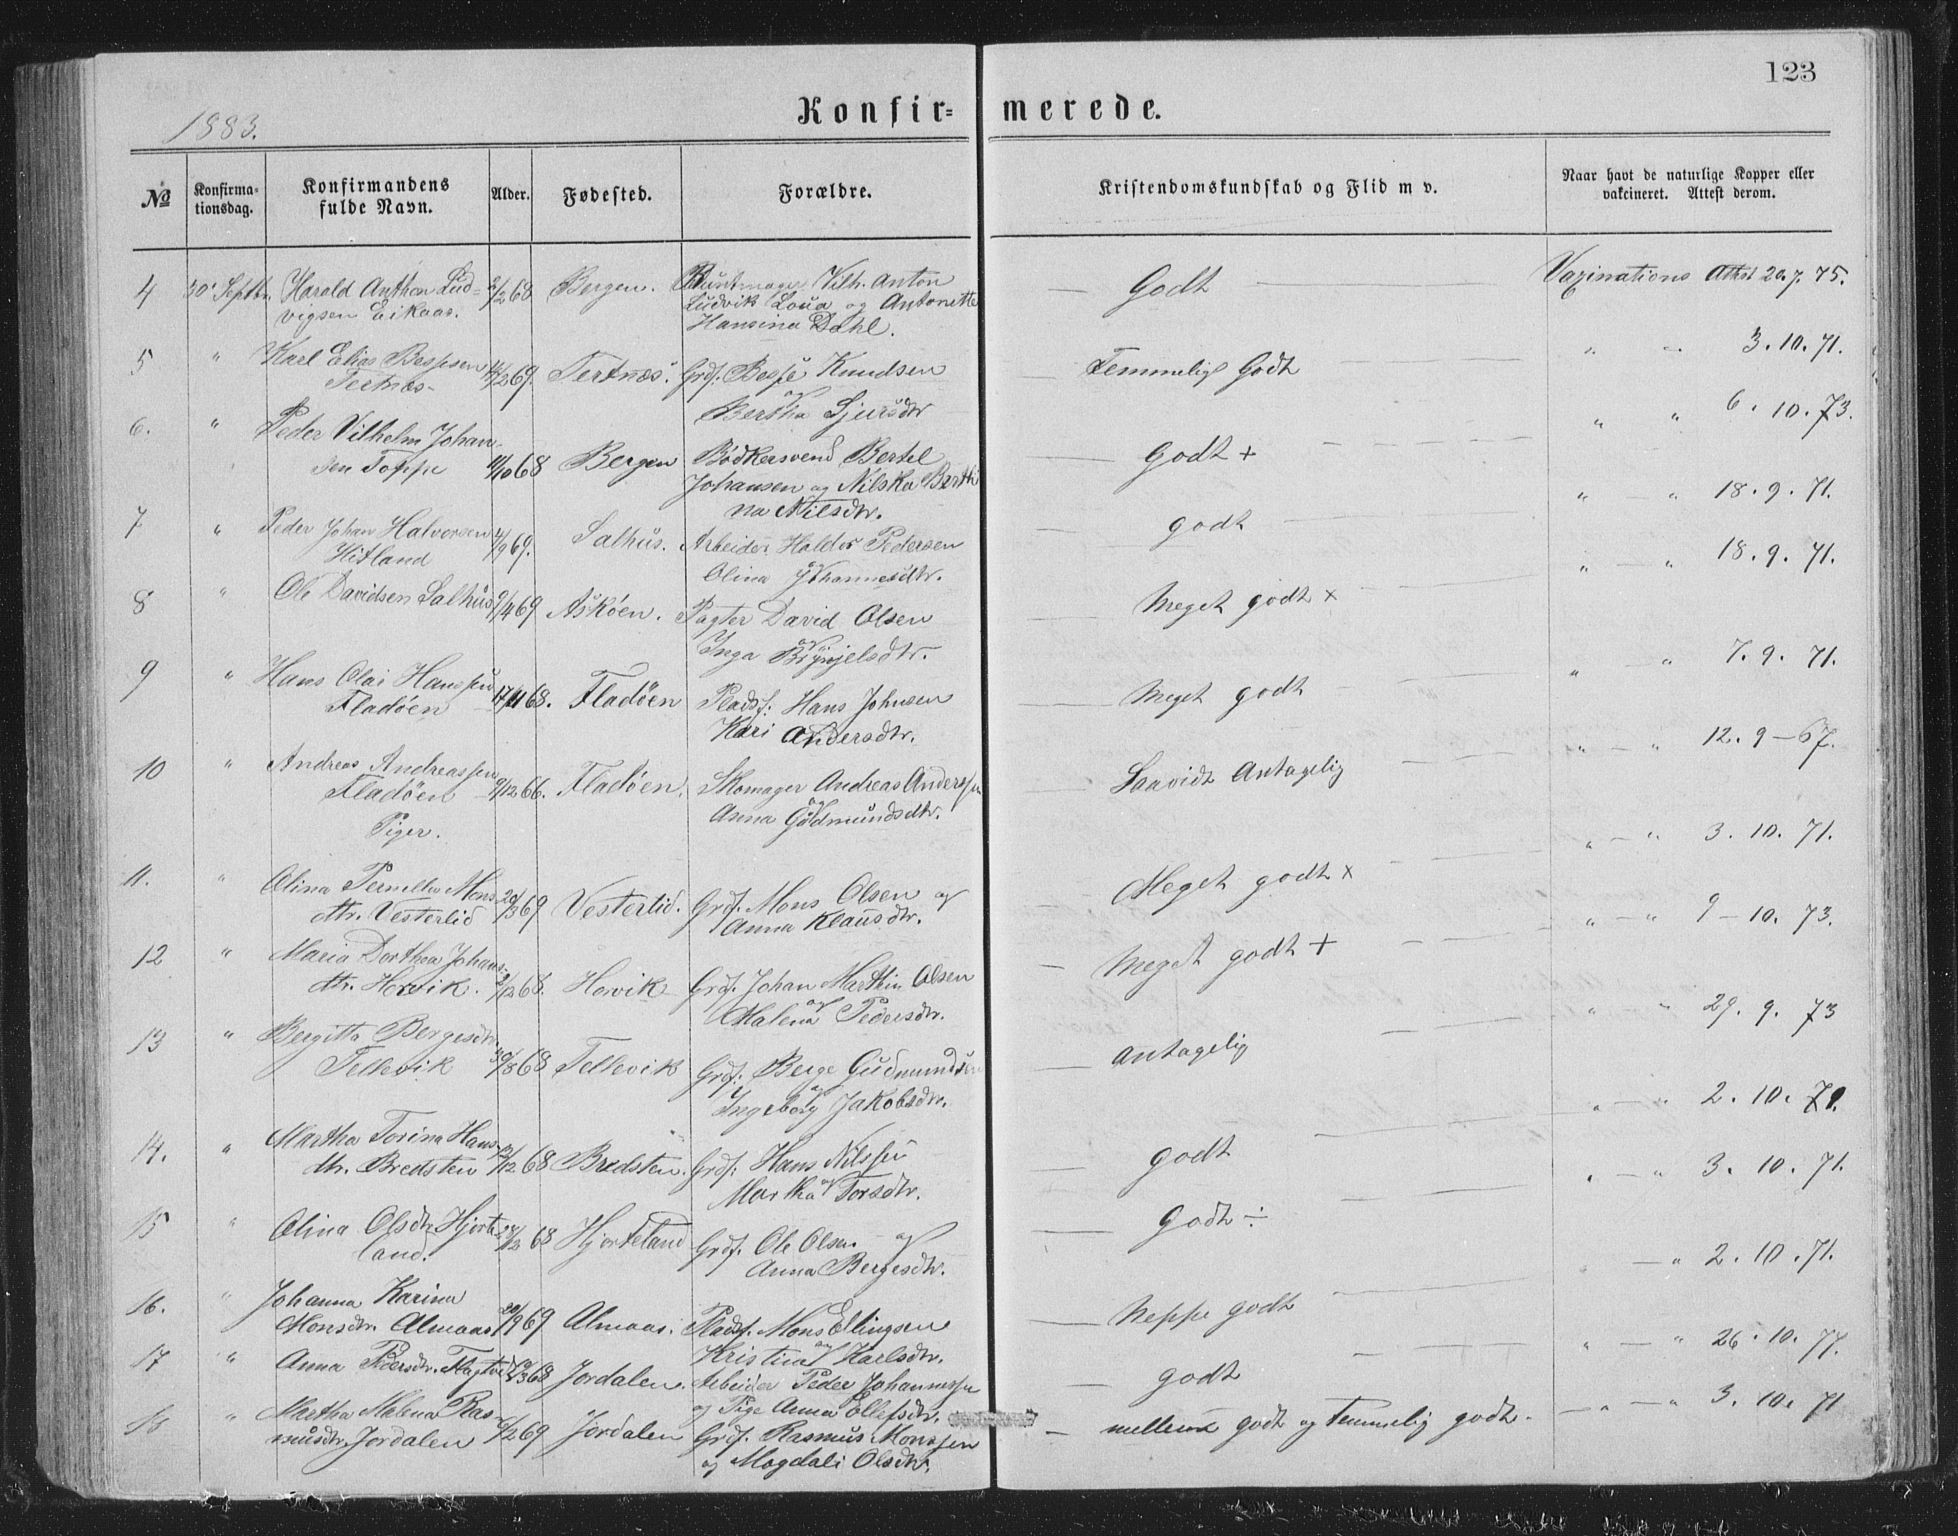 123
1883.
Konfir= merede.
No
Konfirma-
tionsdag.
Konfirmandens
fulde Navn.
Alder.
Fødested.
Forældre.
Kristendomskundskab og Flid m v.
Naar havt de naturlige Kopper eller
vakcineret. Attest derom.
4 30' Septbr. Harald Anthon Lud- 2/2 68 Bergen. Buntmager Vilh. Anton Godt Vaxinations Attest 20.7.75.
vigsen Eikaas. Ludvik Loua og Antonette
Hansina Dahl.
5 " Karl Elias Bessesen /2 69. Tertnæs. Grdf. Besse Knudsen Temmelig Godt " 3.10.71.
Tertnæs og
Bertha Sjursdtr
6. " Peder Vilhelm Johan- 11/10 68 Bergen Bødkersvend Bertel Godt + " " 6.10.73.
sen Toppe Johansen og Nilska Berthi
na Nilsdtr.
7 " Peder Johan Halvorsen 4/9 69. Salhus. Arbeider Haldor Pedersen godt " " 18.9.71.
Hitland og
Olina Johannesdtr.
8 " Ole Davidsen Salhus 9/4 69 Askøen. Pagter David Olsen Meget godt x " " 18.9.71.
og
Inga Brynjelsdtr.
9 " Hans Olai Hanssen 17/11 68. Fladøen Pladsf: Hans Johnsen Meget godt " " 7.9.71.
Fladøen Kari Andersdtr.
10 " Andreas Andreassen 9/12 66. Fladøen. Skomager Andreas Anderssen Saavidt Antagelig " " 12.9-67.
Fladøen og
Anna Gudmundsdtr.
Piger.
11. " Olina Pernille Mons- 20/3 69 Vesterlid. Grdf. Mons Olsen og Meget godt x " " 3.10.71.
dtr. Vesterlid Anna Klausdtr.
12 " Maria Dorthea Johans- 2/12 68. Horvik Grdf. Johan Marthin Olsen Meget godt + " " 9-10.73.
dtr. Horvik. og
Malena Pedersdtr.
13 " Bergitta Bergesdtr. 30/8 68 Tellevik Grdf: Berge Gudmundsen antagelig " " 29.9.73
Tellevik og
Ingeborg Jakobsdtr.
14. " Martha Torina Hans- /12 68 Bredsten. Grdf: Hans Nilssen godt " " 2.10.71.
dtr. Bredsten og
Martha Torsdtr.
15 " Olina Olsdtr. Hjorte- 28/12 68 Hjorteland Grdf. Ole Olsen og Godt ÷ " " 3.10.71.
land. Anna Bergesdtr.
16. " Johanna Karina 20/9 69 Almaas. Pladsf. Mons Ellingsen Neppe godt " " 2.10.71.
Monsdtr. Almaas og
Kristina Karlsdtr.
17 " Anna Pedersdtr. /3 68 Jordalen. Arbeider Peder Johannessen godt " " 26.10.77.
og Pige Anna Ellefsdtr.
18 " Martha Malena Ras- /2 69 Jordalen Grdf. Rasmus Monssen mellem godt og temmelig godt. " " 3.10.71
musdtr. Jordalen og Magdali Olsdtr.